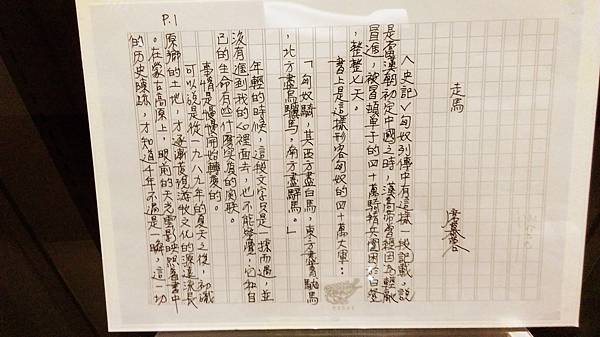 走馬
席慕蓉
〈史記〉匈奴列傳中有這樣一段記載,說
是當漢朝初定中國之時,漢高帝曾經因為輕敵
冒進,被冒頓單于的四十萬騎精兵圍困於白登
,整整七天。
書上是這樣形容匈奴的四十萬大軍:
「匈奴騎,其西方盡白馬,東方盡青駹馬
,北方盡烏驪馬,南方盡騂馬。」
年輕的時候,這段文字只是一掃而過,並
沒有進到我的心裡面去,也不能察覺,它和自
己的生命有些什麼深廣的關聯。
事情是慢慢開始轉變的。
可以說是從一九八九年的夏天之後,初識
原鄉的土地,才逐漸發現游牧文化的源遠流長
。在蒙古高原上,眼前的天光雲影映照著書中
的历史陳跡,才知道千年不過是一瞬,這一切
P.1